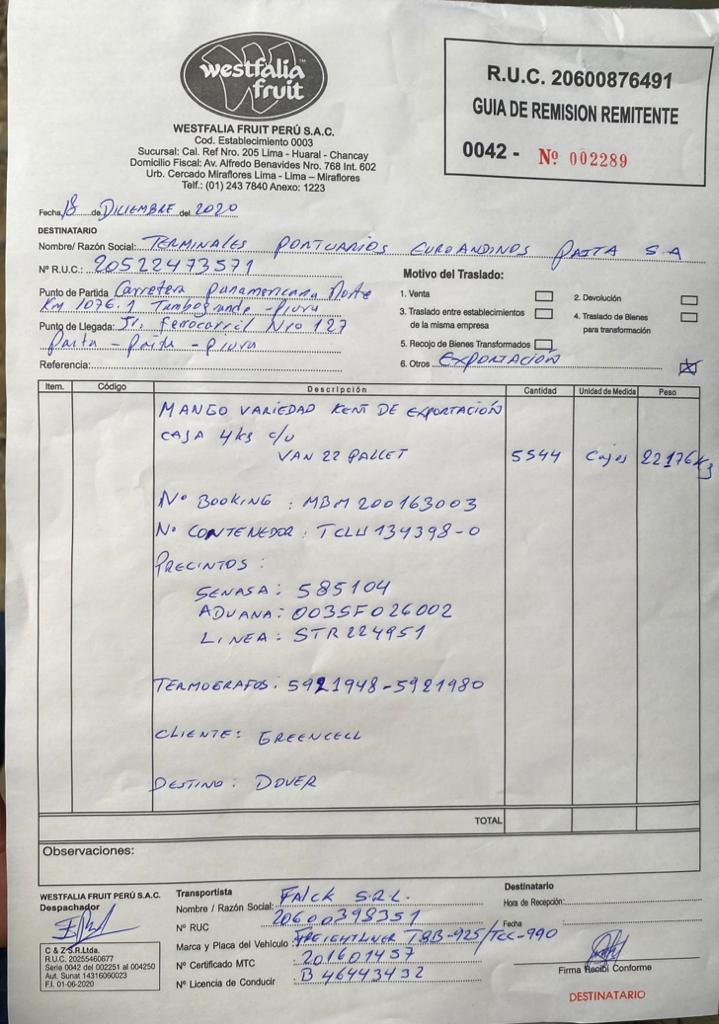 westfalia
fruit
WESTFALIA FRUIT PERÚ S.A.C.
Cod. Establecimiento 0003
Sucursal: Cal. Ref Nro. 205 Lima - Huaral - Chancay
Domicilio Fiscal: Av. Alfredo Benavides Nro. 768 Int. 602
Urb. Cercado Miraflores Lima - Lima – Miraflores
Telf.: (01) 243 7840 Anexo: 1223
R.U.C. 20600876491
GUIA DE REMISION REMITENTE
0042 - Nº 002289
Fecha, 18 de DICIEMBRE del 2020
DESTINATARIO
Nombre/ Razón Social: TERMINALES PORTUARIOS EUROANDINOS PAITA S.A
Nº R.U.C.: 20522473571
Punto de Partida Carretera panamericana Norte
Km 1076.1 Tambogrande - piura
Punto de Llegada: Jr. Ferrocarril Nro 127
paita - paita - piura
Referencia:
Motivo del Traslado:
1. Venta
2. Devolución
3. Traslado entre establecimientos de la misma empresa
4. Traslado de Bienes para transformación
5. Recojo de Bienes Transformados
6. Otros EXPORTACIÓN X
Item. Código Descripción Cantidad Unidad de Medida Peso
MANGO VARIEDAD KENT DE EXPORTACIÓN
CAJA 4kg c/u
VAN 22 PALLET 5544 Cajas 22176Kg
Nº BOOKING : MBM200163003
Nº CONTENEDOR : TCLU134398-0
PRECINTOS :
SENASA : 585104
ADUANA : 003SF026002
LINEA : STR224951
TERMOGRAFOS. 5921948-5921980
CLIENTE: GREENCELL
DESTINO : DOVER
TOTAL
Observaciones:
WESTFALIA FRUIT PERÚ S.A.C.
Despachador
C & Z S.R.Ltda.
R.U.C. 20255460677
Serie 0042 del 002251 al 004250
Aut. Sunat 14316060023
F.I. 01-06-2020
Transportista
Nombre / Razón Social: FALCK S.R.L.
Nº RUC 20600398351
Marca y Placa del Vehículo : FREIGHTLINER T8B-925/TCC-990
Nº Certificado MTC 201601457
Nº Licencia de Conducir B 46443432
Destinatario
Hora de Recepción:
Fecha
Firma Recibí Conforme
DESTINATARIO